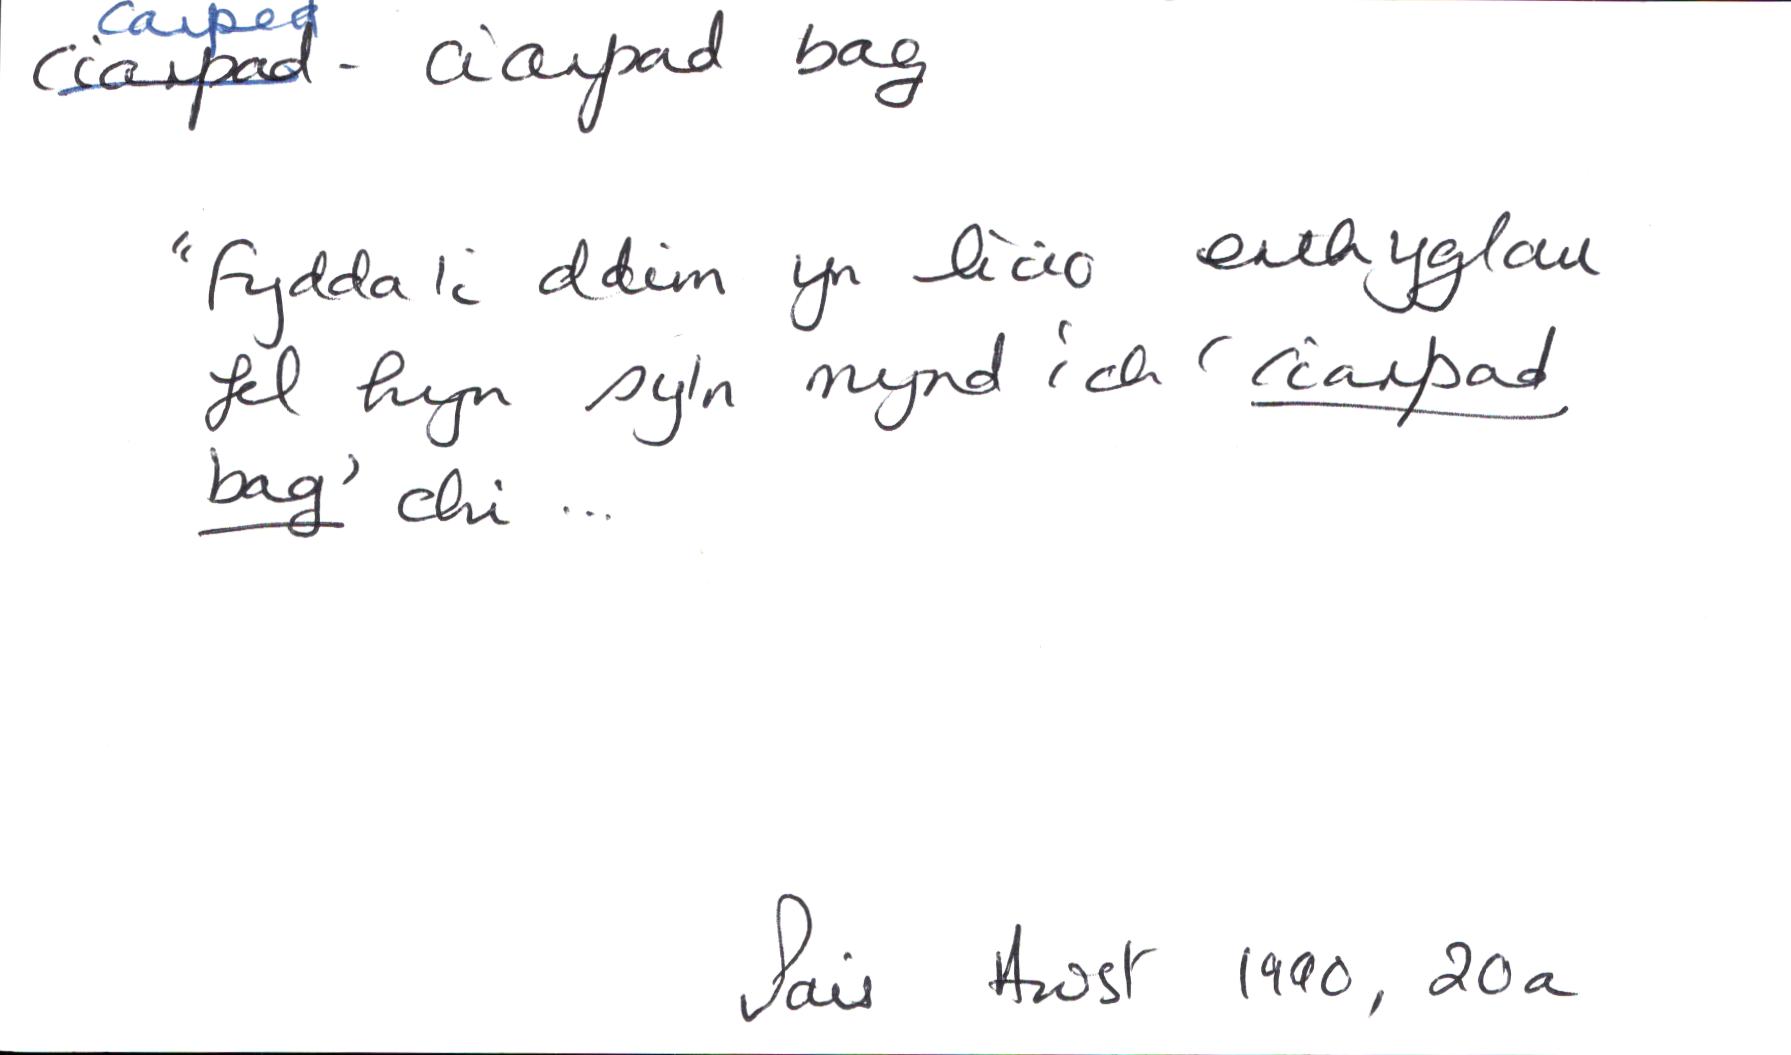 carped
ciarpad - ciarpad bag
"Fydda'i ddim yn licio erthyglau
fel hyn sy'n mynd i'ch 'ciarpad
bag' chi ...
Pais Awst 1990, 20a